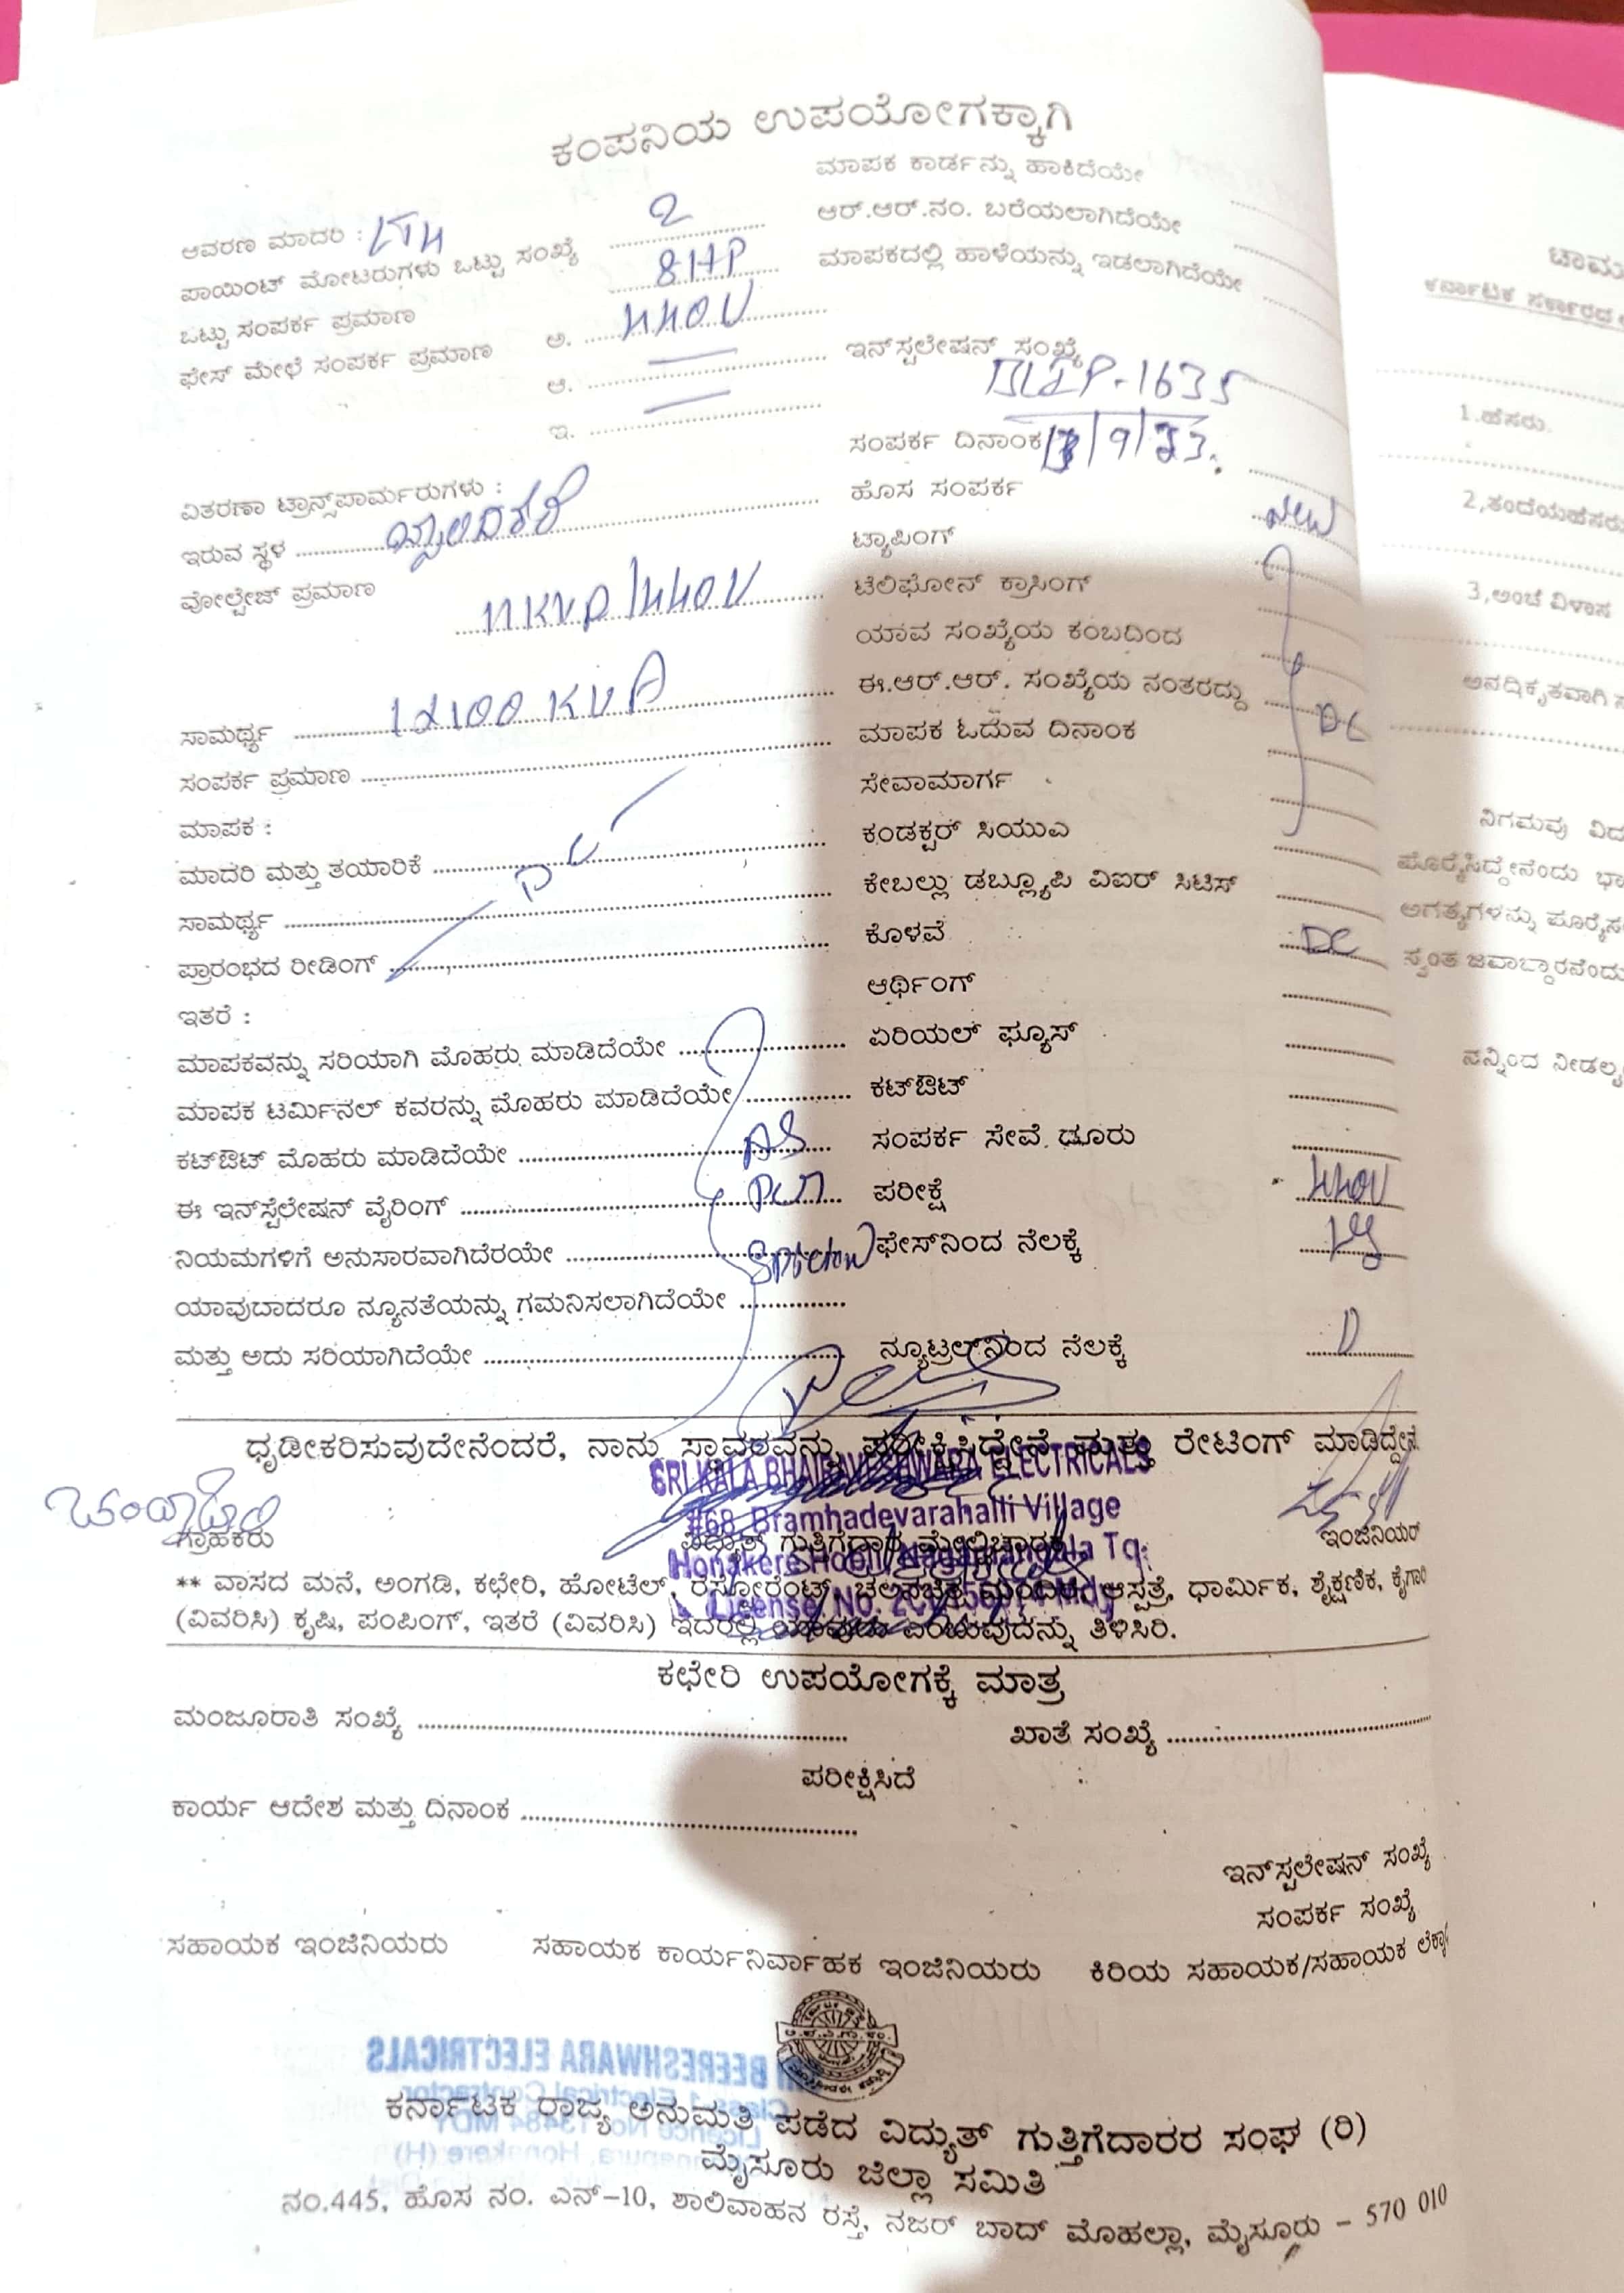 ಕಂಪನಿಯ ಉಪಯೋಗಕ್ಕಾಗಿ
ಆವರಣ ಮಾದರಿ :
ಪಾಯಿಂಟ್ ಮೋಟರುಗಳು ಒಟ್ಟು ಸಂಖ್ಯೆ 2
ಒಟ್ಟು ಸಂಪರ್ಕ ಪ್ರಮಾಣ 8HP
ಫೇಸ್ ಮೇಲೆ ಸಂಪರ್ಕ ಪ್ರಮಾಣ ಅ. 440V
ಆ.
ಇ.
ವಿತರಣಾ ಟ್ರಾನ್ಸ್‌ಪಾರ್ಮರುಗಳು :
ಇರುವ ಸ್ಥಳ
ವೋಲ್ಟೇಜ್ ಪ್ರಮಾಣ 11KVP/440V
ಸಾಮರ್ಥ್ಯ 1x100 KVA
ಸಂಪರ್ಕ ಪ್ರಮಾಣ
ಮಾಪಕ :
ಮಾದರಿ ಮತ್ತು ತಯಾರಿಕೆ
ಸಾಮರ್ಥ್ಯ DC
ಪ್ರಾರಂಭದ ರೀಡಿಂಗ್
ಇತರೆ :
ಮಾಪಕವನ್ನು ಸರಿಯಾಗಿ ಮೊಹರು ಮಾಡಿದೆಯೇ
ಮಾಪಕ ಟರ್ಮಿನಲ್ ಕವರನ್ನು ಮೊಹರು ಮಾಡಿದೆಯೇ
ಕಟ್‌ಔಟ್ ಮೊಹರು ಮಾಡಿದೆಯೇ AS
ಈ ಇನ್‌ಸ್ಟೆಲೇಷನ್ ವೈರಿಂಗ್
ನಿಯಮಗಳಿಗೆ ಅನುಸಾರವಾಗಿದೆರಯೇ
ಯಾವುದಾದರೂ ನ್ಯೂನತೆಯನ್ನು ಗಮನಿಸಲಾಗಿದೆಯೇ
ಮತ್ತು ಅದು ಸರಿಯಾಗಿದೆಯೇ
ಮಾಪಕ ಕಾರ್ಡನ್ನು ಹಾಕಿದೆಯೇ
ಆರ್.ಆರ್.ನಂ. ಬರೆಯಲಾಗಿದೆಯೇ
ಮಾಪಕದಲ್ಲಿ ಹಾಳೆಯನ್ನು ಇಡಲಾಗಿದೆಯೇ
ಇನ್‌ಸ್ಟಲೇಷನ್ ಸಂಖ್ಯೆ
BLIP-1635
ಸಂಪರ್ಕ ದಿನಾಂಕ
ಹೊಸ ಸಂಪರ್ಕ New
ಟ್ಯಾಪಿಂಗ್
ಟೆಲಿಫೋನ್ ಕ್ರಾಸಿಂಗ್
ಯಾವ ಸಂಖ್ಯೆಯ ಕಂಬದಿಂದ
ಈ.ಆರ್.ಆರ್. ಸಂಖ್ಯೆಯ ನಂತರದ್ದು
ಮಾಪಕ ಓದುವ ದಿನಾಂಕ DC
ಸೇವಾಮಾರ್ಗ
ಕಂಡಕ್ಟರ್ ಸಿಯುಎ
ಕೇಬಲ್ಲು ಡಬ್ಲ್ಯೂಪಿ ವಿಐರ್ ಸಿಟಿಸ್
ಕೊಳವೆ DC
ಆರ್ಥಿಂಗ್
ಏರಿಯಲ್ ಫ್ಯೂಸ್
ಕಟ್‌ಔಟ್
ಸಂಪರ್ಕ ಸೇವೆ ಢೂರು
ಪರೀಕ್ಷೆ 440V
ಫೇಸ್‌ನಿಂದ ನೆಲಕ್ಕೆ
ನ್ಯೂಟ್ರಲ್‌ನಿಂದ ನೆಲಕ್ಕೆ
ಧೃಡೀಕರಿಸುವುದೇನೆಂದರೆ, ನಾನು ಸ್ಥಾವರವನ್ನು ಪರೀಕ್ಷಿಸಿದ್ದೇನೆ ಮತ್ತು ರೇಟಿಂಗ್ ಮಾಡಿದ್ದೇನೆ
SRI KALA BHAIRAVESHWARA ELECTRICALS
#68, Bramhadevarahalli Village
Honakere Hobli, Nagamangala Tq.
License No.
ಗ್ರಾಹಕರು ವಿದ್ಯುತ್ ಗುತ್ತಿಗೆದಾರ ಮೇಲ್ವಿಚಾರಕ ಇಂಜಿನಿಯರ್
** ವಾಸದ ಮನೆ, ಅಂಗಡಿ, ಕಛೇರಿ, ಹೋಟೆಲ್, ರೆಸ್ಟೋರೆಂಟ್, ಚಲನಚಿತ್ರ ಮಂದಿರ, ಆಸ್ಪತ್ರೆ, ಧಾರ್ಮಿಕ, ಶೈಕ್ಷಣಿಕ,
(ವಿವರಿಸಿ) ಕೃಷಿ, ಪಂಪಿಂಗ್, ಇತರೆ (ವಿವರಿಸಿ) ಇದರಲ್ಲಿ ಯಾವುದು ಎಂಬುವುದನ್ನು ತಿಳಿಸಿರಿ.
ಕಛೇರಿ ಉಪಯೋಗಕ್ಕೆ ಮಾತ್ರ
ಮಂಜೂರಾತಿ ಸಂಖ್ಯೆ ಖಾತೆ ಸಂಖ್ಯೆ
ಪರೀಕ್ಷಿಸಿದೆ
ಕಾರ್ಯ ಆದೇಶ ಮತ್ತು ದಿನಾಂಕ
ಇನ್‌ಸ್ಟಲೇಷನ್ ಸಂಖ್ಯೆ
ಸಂಪರ್ಕ ಸಂಖ್ಯೆ
ಸಹಾಯಕ ಇಂಜಿನಿಯರು ಸಹಾಯಕ ಕಾರ್ಯನಿರ್ವಾಹಕ ಇಂಜಿನಿಯರು ಕಿರಿಯ ಸಹಾಯಕ/ಸಹಾಯಕ
ಕರ್ನಾಟಕ ರಾಜ್ಯ ಅನುಮತಿ ಪಡೆದ ವಿದ್ಯುತ್ ಗುತ್ತಿಗೆದಾರರ ಸಂಘ (ರಿ)
ಮೈಸೂರು ಜಿಲ್ಲಾ ಸಮಿತಿ
ನಂ.445, ಹೊಸ ನಂ. ಎನ್-10, ಶಾಲಿವಾಹನ ರಸ್ತೆ, ನಜರ್ ಬಾದ್ ಮೊಹಲ್ಲಾ, ಮೈಸೂರು - 570 010
BEERESHWARA ELECTRICALS
1.ಹೆಸರು.
2,ತಂದೆಯಹೆಸರು
3,ಅಂಚೆ ವಿಳಾಸ
ಅನಧಿಕೃತವಾಗಿ
ನಿಗಮವು